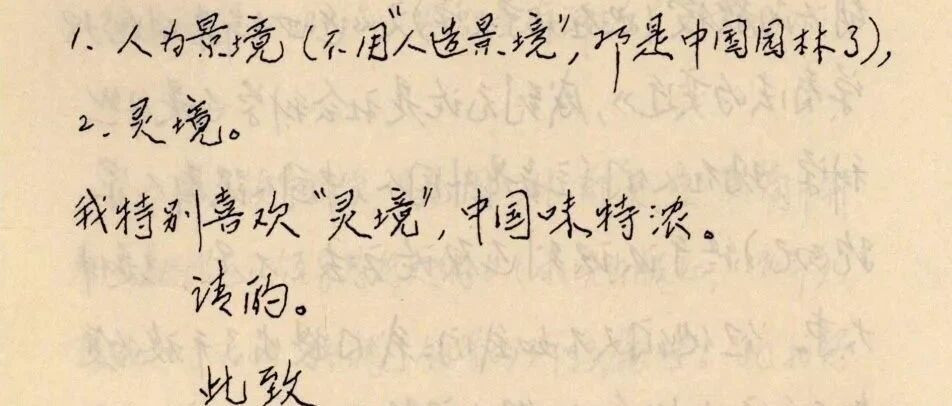 1. 人为景境(不用"人造景境",那是中国园林了),
2. 灵境。
我特别喜欢"灵境",中国味特浓。
请酌。
此致